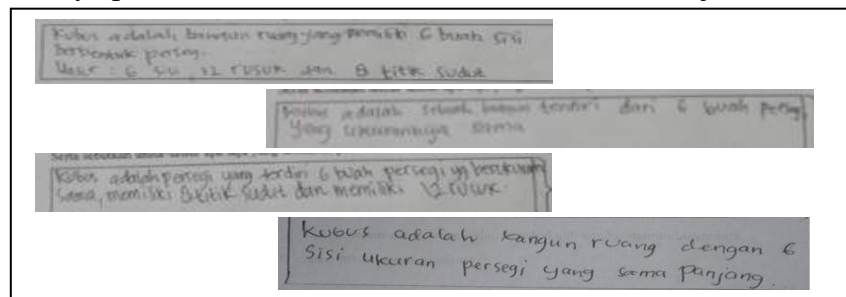 Kubus adalah bangun ruang yang memiliki 6 buah sisi
berbentuk persegi.
Unsur : 6 sisi, 12 rusuk dan 8 titik sudut
Kubus adalah sebuah bangun terdiri dari 6 buah persegi
yang ukurannya sama
Kubus adalah persegi yang terdiri 6 buah persegi yg berukuran
sama, memiliki 8 titik sudut dan memiliki 12 rusuk.
Kubus adalah bangun ruang dengan 6
Sisi ukuran persegi yang sama panjang.